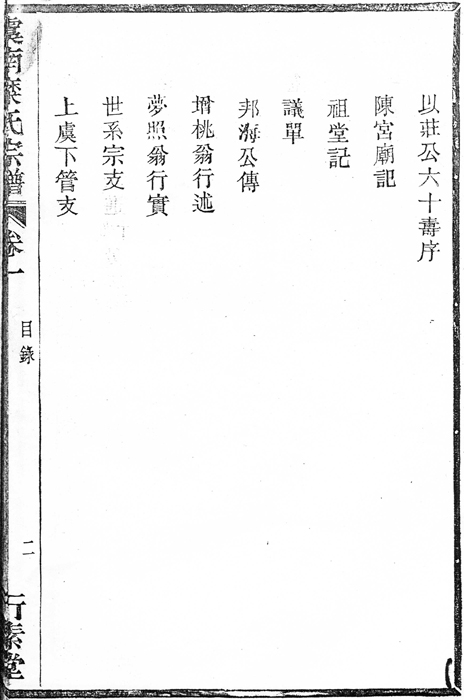 以莊公六十壽序
陳宮廟記
祖堂記
議單
邦海公傳
增桃翁行述
夢照翁行實
世系宗支
上虞下管支
虞南 氏宗譜
卷一
目錄
二
行素堂